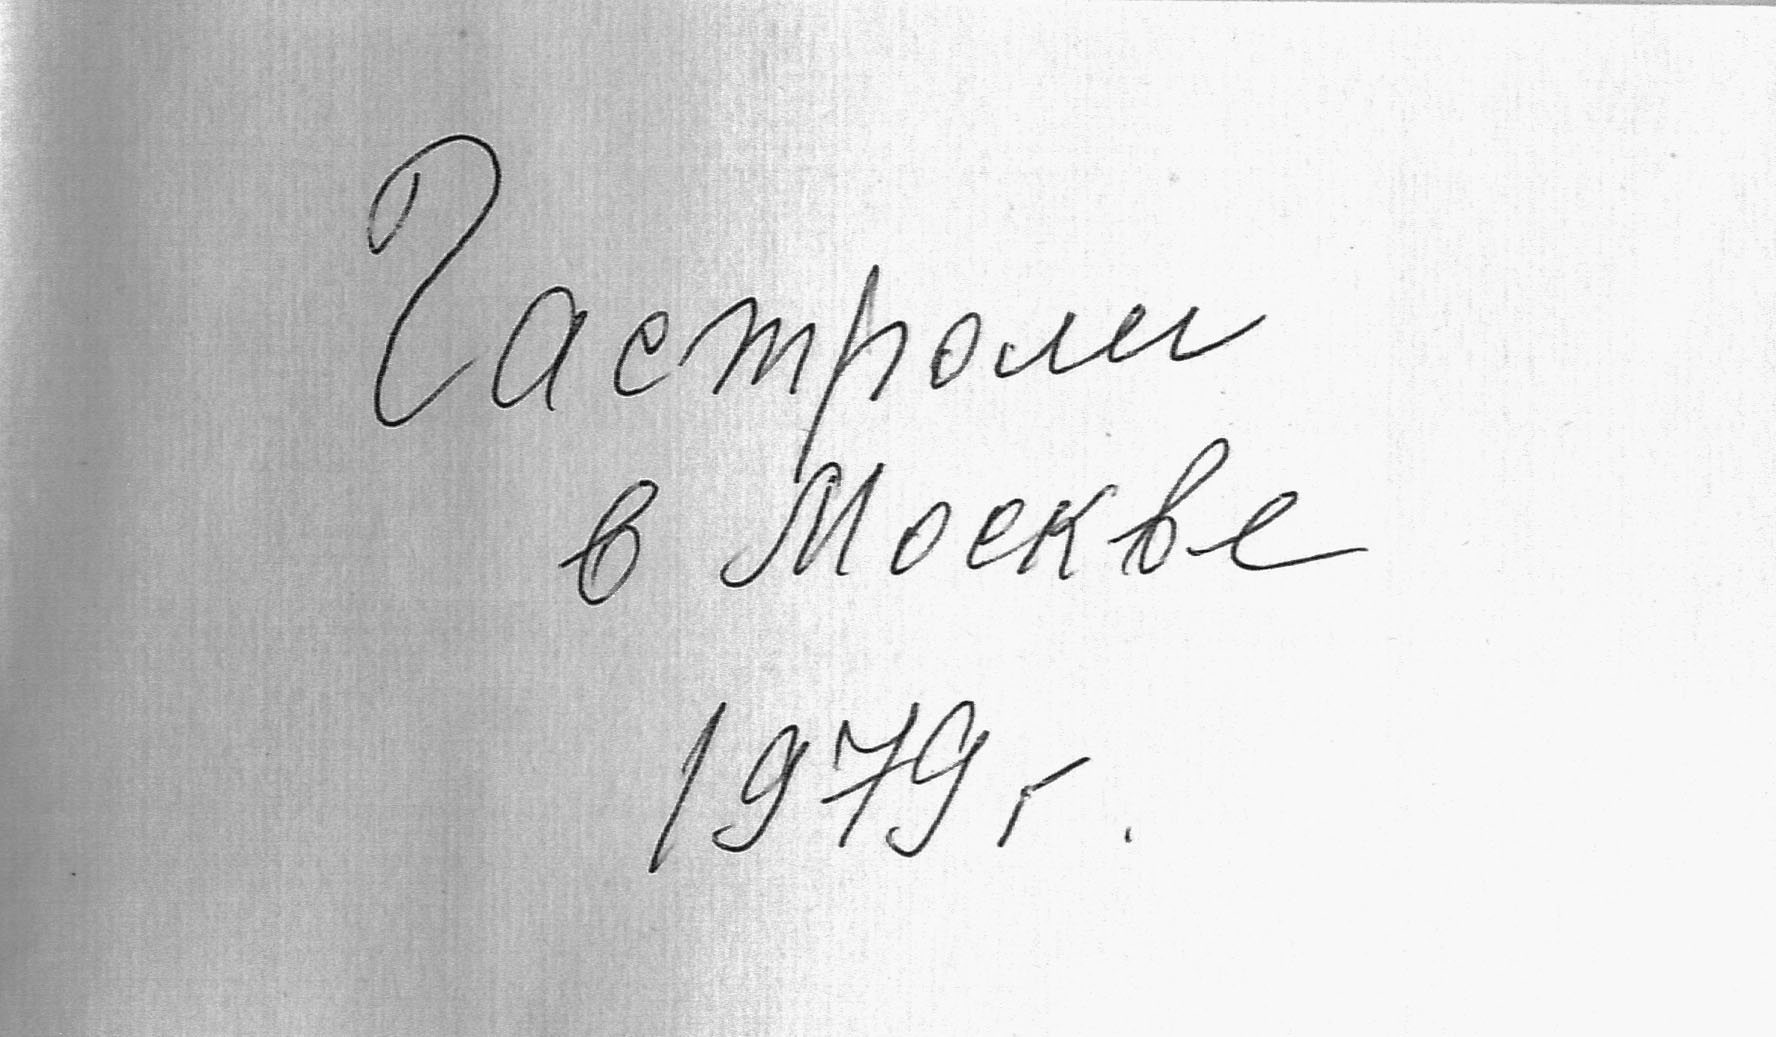 Гастроли
в Москве
1979 г.